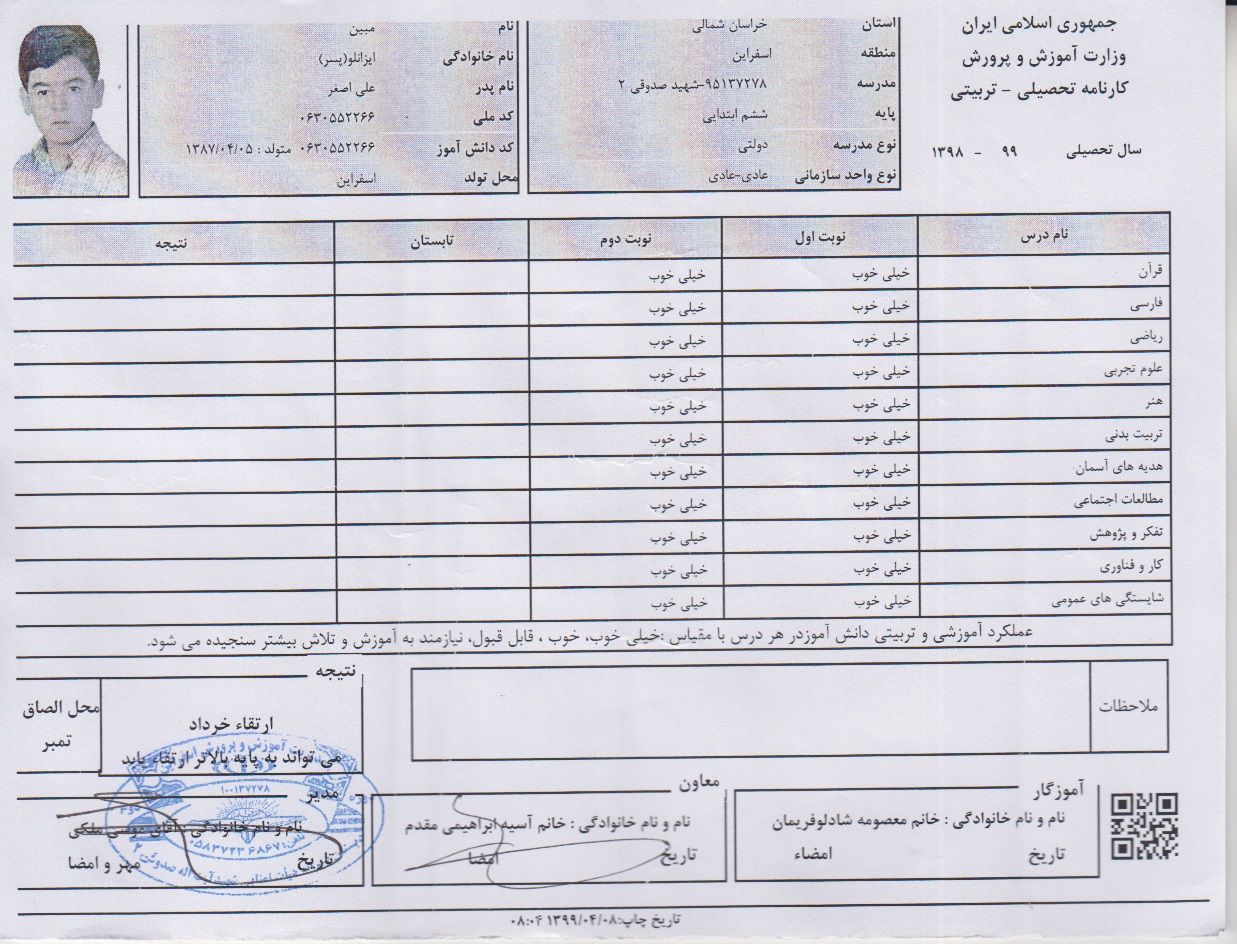 جمهوری اسلامی ایران
وزارت آموزش و پرورش
کارنامه تحصیلی - تربیتی
سال تحصیلی ۹۹ - ۱۳۹۸
استان خراسان شمالی
منطقه اسفراین
مدرسه ۹۵۱۳۷۲۷۸-شهید صدوقی ۲
پایه ششم ابتدایی
نوع مدرسه دولتی
نوع واحد سازمانی عادی-عادی
نام مبین
نام خانوادگی ایزانلو(پسر)
نام پدر علی اصغر
کد ملی ۰۶۳۰۵۵۲۲۶۶
کد دانش آموز ۰۶۳۰۵۵۲۲۶۶ متولد : ۱۳۸۷/۰۴/۰۵
محل تولد اسفراین
نام درس نوبت اول نوبت دوم تابستان نتیجه
قرآن خیلی خوب خیلی خوب
فارسی خیلی خوب خیلی خوب
ریاضی خیلی خوب خیلی خوب
علوم تجربی خیلی خوب خیلی خوب
هنر خیلی خوب خیلی خوب
تربیت بدنی خیلی خوب خیلی خوب
هدیه های آسمان خیلی خوب خیلی خوب
مطالعات اجتماعی خیلی خوب خیلی خوب
تفکر و پژوهش خیلی خوب خیلی خوب
کار و فناوری خیلی خوب خیلی خوب
شایستگی های عمومی خیلی خوب خیلی خوب
عملکرد آموزشی و تربیتی دانش آموزدر هر درس با مقیاس :خیلی خوب، خوب ، قابل قبول، نیازمند به آموزش و تلاش بیشتر سنجیده می شود.
ملاحظات
نتیجه
ارتقاء خرداد
می تواند به پایه بالاتر ارتقاء یابد
محل الصاق
تمبر
آموزگار
نام و نام خانوادگی : خانم معصومه شادلوفریمان
تاریخ امضاء
معاون
نام و نام خانوادگی : خانم آسیه ابراهیمی مقدم
تاریخ امضا
مدیر
نام و نام خانوادگی : آقای موسی ملکی
تاریخ مهر و امضا
۱۰۰۱۳۷۲۷۸
تاریخ چاپ:۱۳۹۹/۰۴/۰۸ ۰۸:۰۴